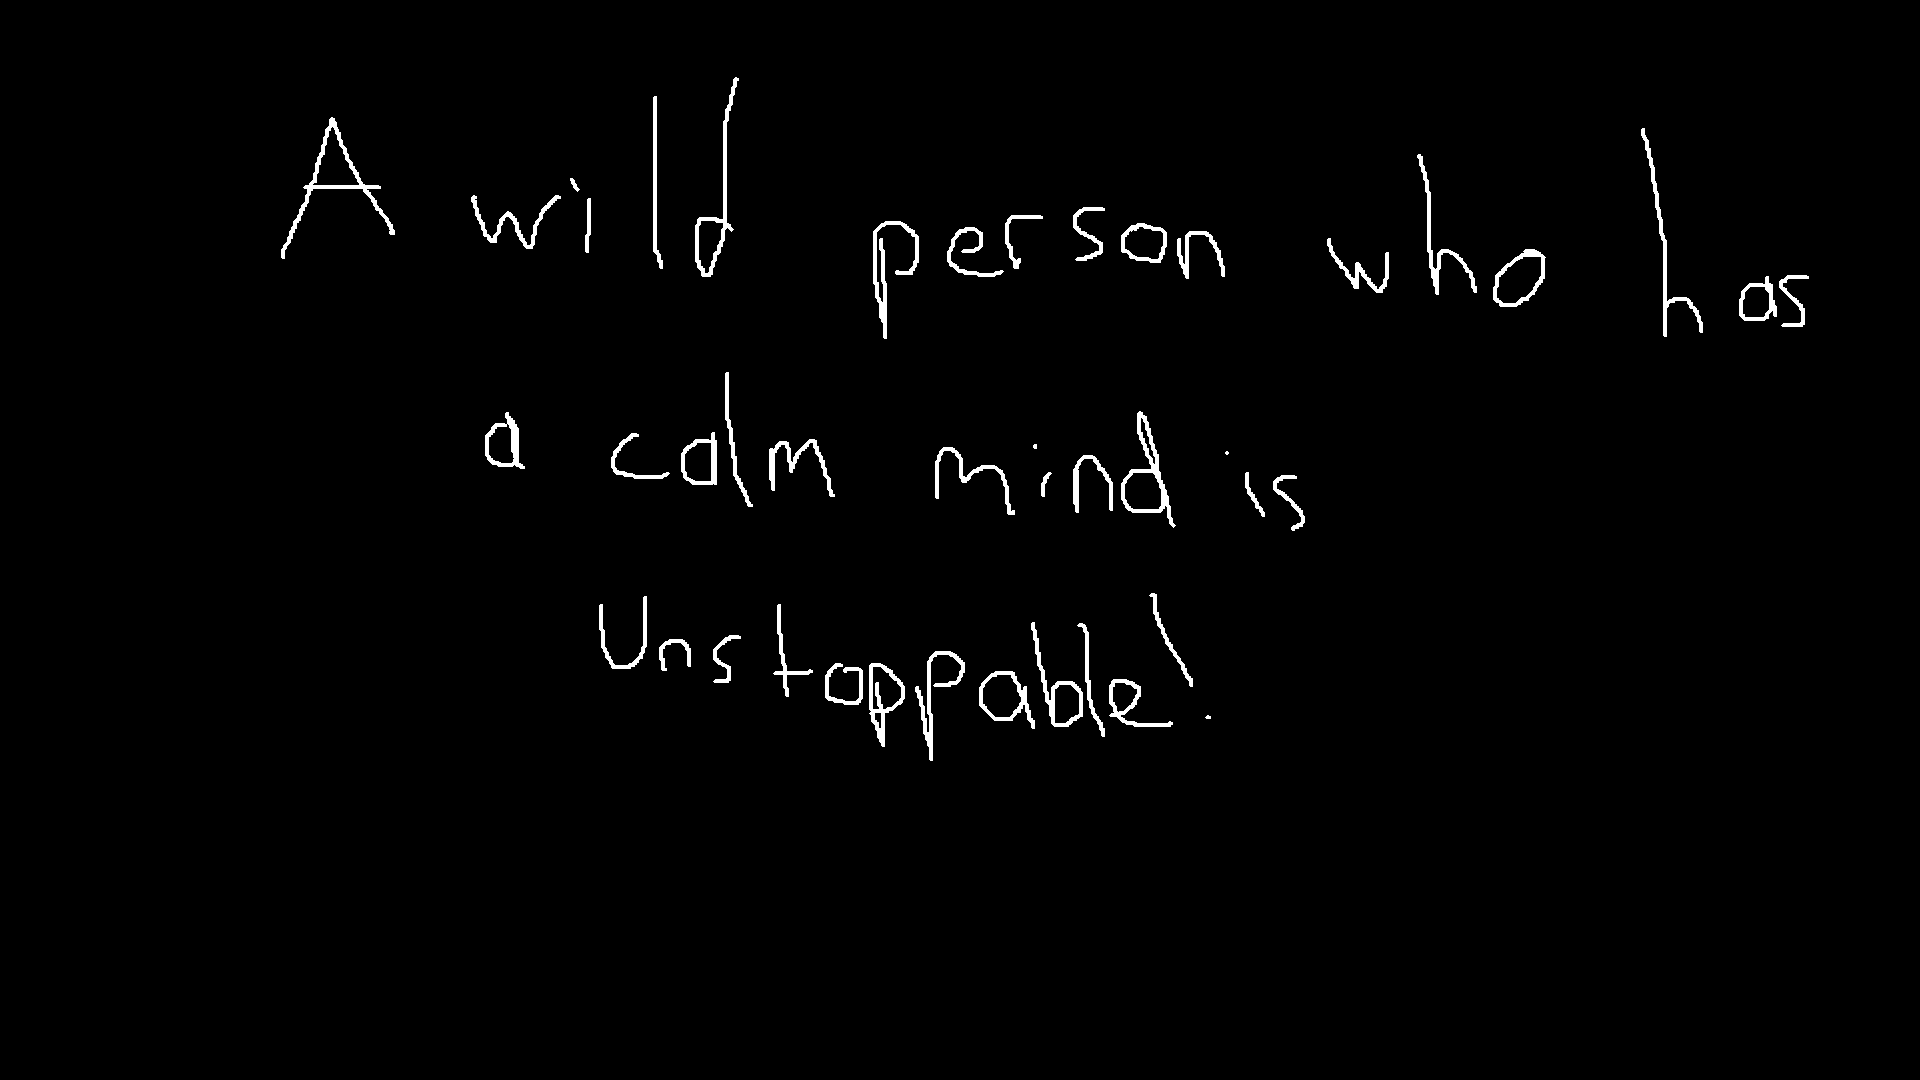 A wild person who has
a calm mind is
Unstoppable!